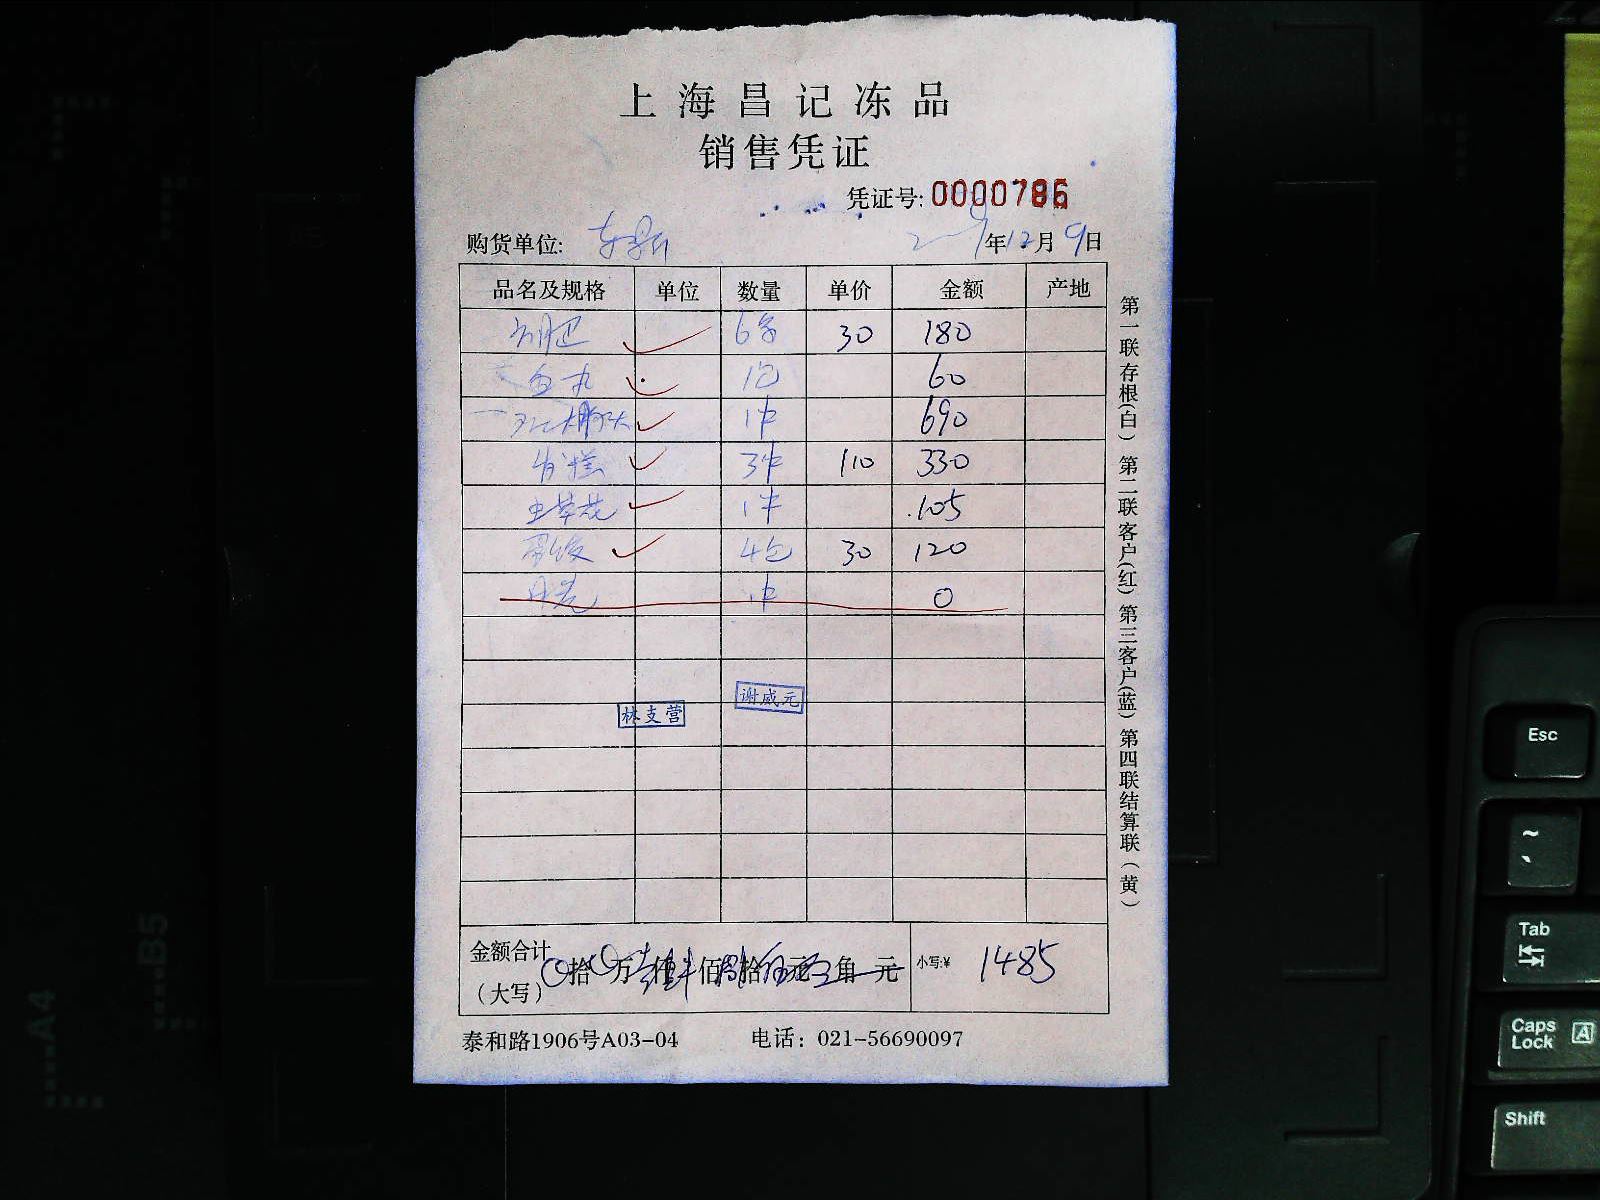 上海昌记冻品
销售凭证
凭证号: 0000786
购货单位: 年12月9日
品名及规格 单位 数量 单价 金额 产地
6 30 180
鱼丸 1包 60
1件 690
3件 110 330
虫草花 1件 105
4包 30 120
1件 0
谢威元
林支营
金额合计
(大写) 拾 万 仟 佰 拾 元 角 元 小写:¥ 1485
泰和路1906号A03-04 电话: 021-56690097
第一联存根(白) 第二联客户(红) 第三客户(蓝) 第四联结算联(黄)
Esc
~
Tab
Caps Lock A
Shift
B5
A4